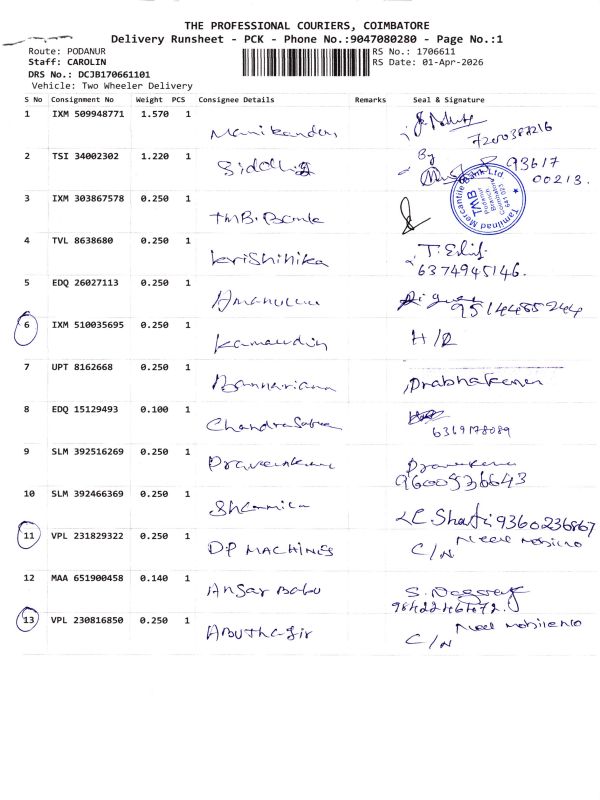 THE PROFESSIONAL COURIERS, COIMBATORE
Delivery Runsheet - PCK - Phone No.:9047080280 - Page No.:1
Route: PODANUR RS No.: 1706611
Staff: CAROLIN RS Date: 01-Apr-2026
DRS No.: DCJB170661101
Vehicle: Two Wheeler Delivery
S No Consignment No Weight PCS Consignee Details Remarks Seal & Signature
1 IXM 509948771 1.570 1
Manikandan 7200387216
2 TSI 34002302 1.220 1 By
Siddhiq 93617
00213.
Tamilnad Mercantile Bank Ltd
TMB
3 IXM 303867578 0.250 1
TMB. Bank
4 TVL 8638680 0.250 1
krishinika 6374945146.
5 EDQ 26027113 0.250 1
9514455244
6 IXM 510035695 0.250 1
Kamaudin H/R
7 UPT 8162668 0.250 1
Prabhakaran
8 EDQ 15129493 0.100 1
Chandrasekar 6369178089
9 SLM 392516269 0.250 1
Praveenkumar 9600536643
10 SLM 392466369 0.250 1
9360236867
11 VPL 231829322 0.250 1
DP MACHINES C/N Need mobile no
12 MAA 651900458 0.140 1
Ansar Babu S.
13 VPL 230816850 0.250 1
C/N Need mobile no